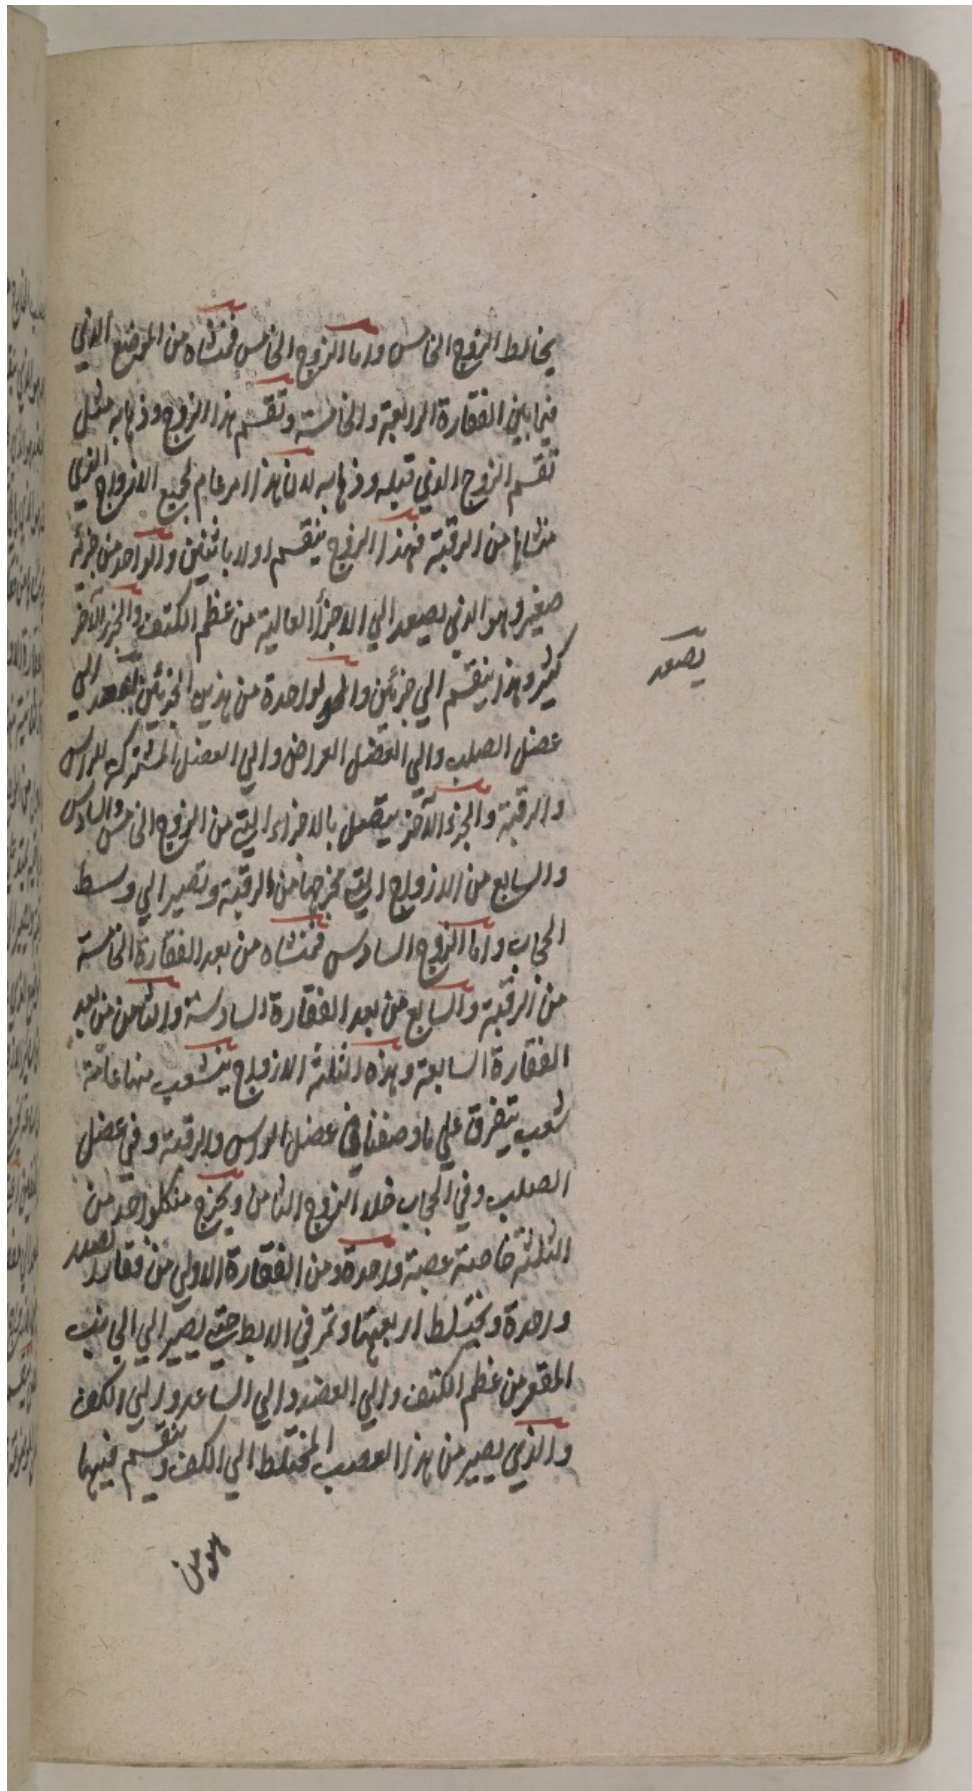 يخالط الزوج الخامس واما الزوج الخامس فمنشاه من الموضع الذي
فيما بين الفقارة الرابعة والخامسة وتقسم هذا الزوج وذهابه مثل
تقسم الزوج الذي قبله وذهابه لان هذا امر عام لجميع الازواج التي
منشاها من الرقبة فهذا الزوج ينقسم اولا باثنين والواحد من جزئيه
صغير وهو الذي يصعد الي الاجزأ العالية من عظم الكتف والجزء الآخر
كثير وهذا ينقسم الي جزئين والواحدة من هذين الجزئين الي
عضل الصلب والي العضل العراض والي العضل المشترك للراس
والرقبة والجزء الآخر يتصل بالاجزاء التي من الزوج الخامس والسادس
والسابع من الازواج التي مخرجها من الرقبة وتصير الي وسط
الحجاب واما الزوج السادس فمنشاه من بعد الفقارة الخامسة
من الرقبة والسابع من بعد الفقارة السادسة والثامن من بعد
الفقارة السابعة وهذه الثلثة الازواج ينشعب منها عامة
شعب يتفرق علي ما وصفنا في عضل الراس والرقبة وفي عضل
الصلب وفي الحجاب خلا الزوج الثامن ويخرج من كلواحد من
الثلثة خاصة عصبة واحدة ومن الفقارة الاولي من فقار الصدر
واحدة ويختلط اربعتها وتمر في الابط حتي يصير الي الجانب
المقعر من عظم الكتف والي العضد والي الساعد والي الكف
والذي يصير من هذا العصب المختلط الي الكف وينقسم فيها
هو من
يصعد